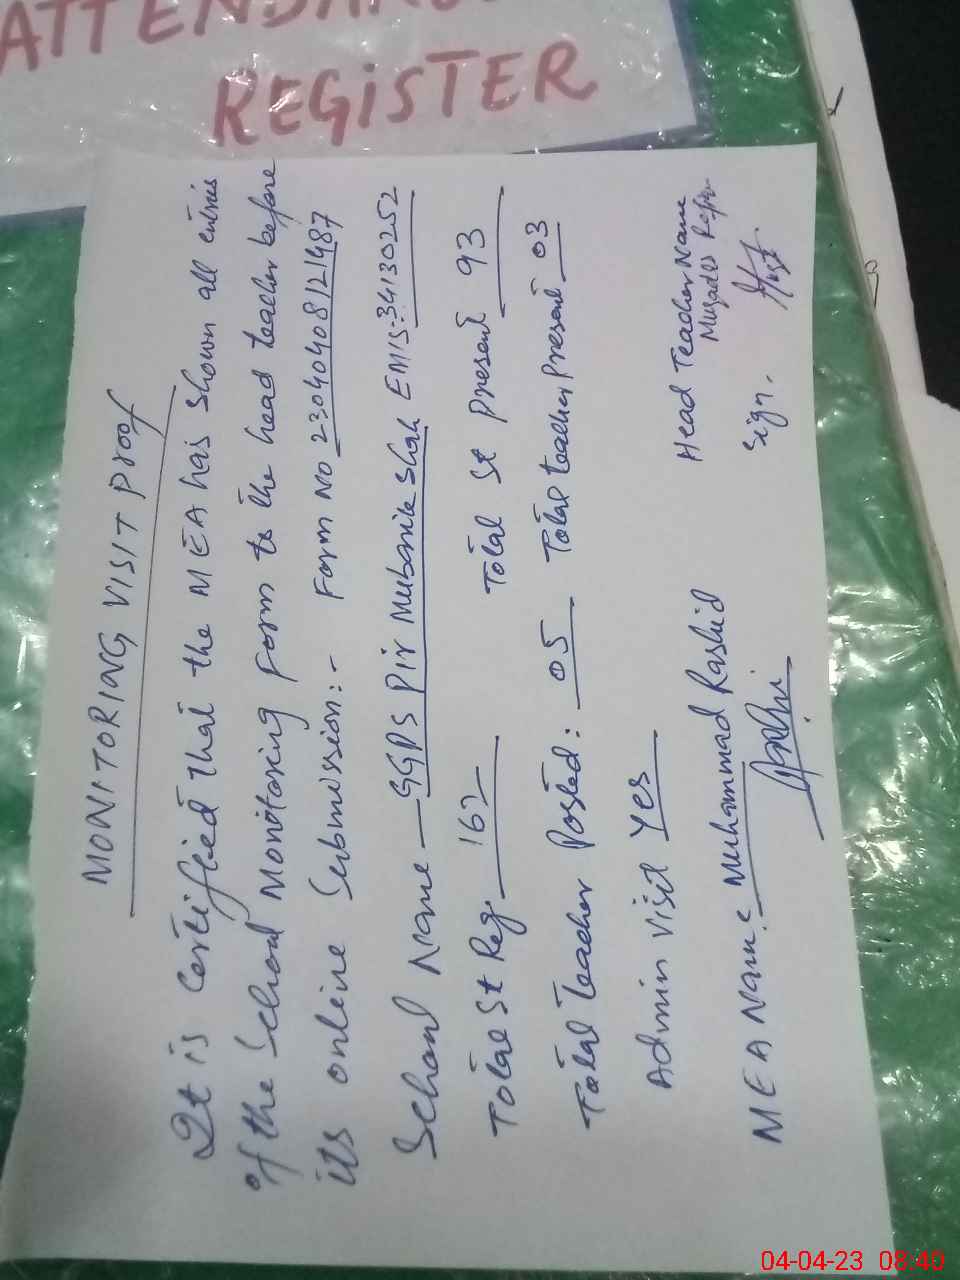 ATTENDANC
REGISTER
MONITORING VISIT Proof
It is Certified that the MEA has shown all entries
of the School Monitoring Form to the head teacher before
its online Submission:- Form NO 23040408121487
School Name GGPS Pir Mubarik Shah EMIS-34130252
Total St Reg. 162 Total St Present 93
Total Teacher Posted: 05 Total teacher Present 03
Admin Visit Yes
Head Teacher Name
MEA Name Muhammad Rashid
Sign.
04-04-23 08:40